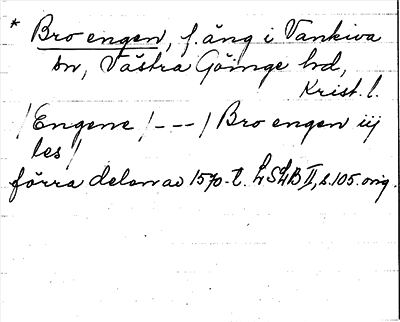 * Bro engen, f. äng i Vankiva
sn, Västra Göinge hd,
Krist. l.
/Engene/---/Bro engen iij
les/
förra delen av 1570-t. LSLB II, s. 105. orig.